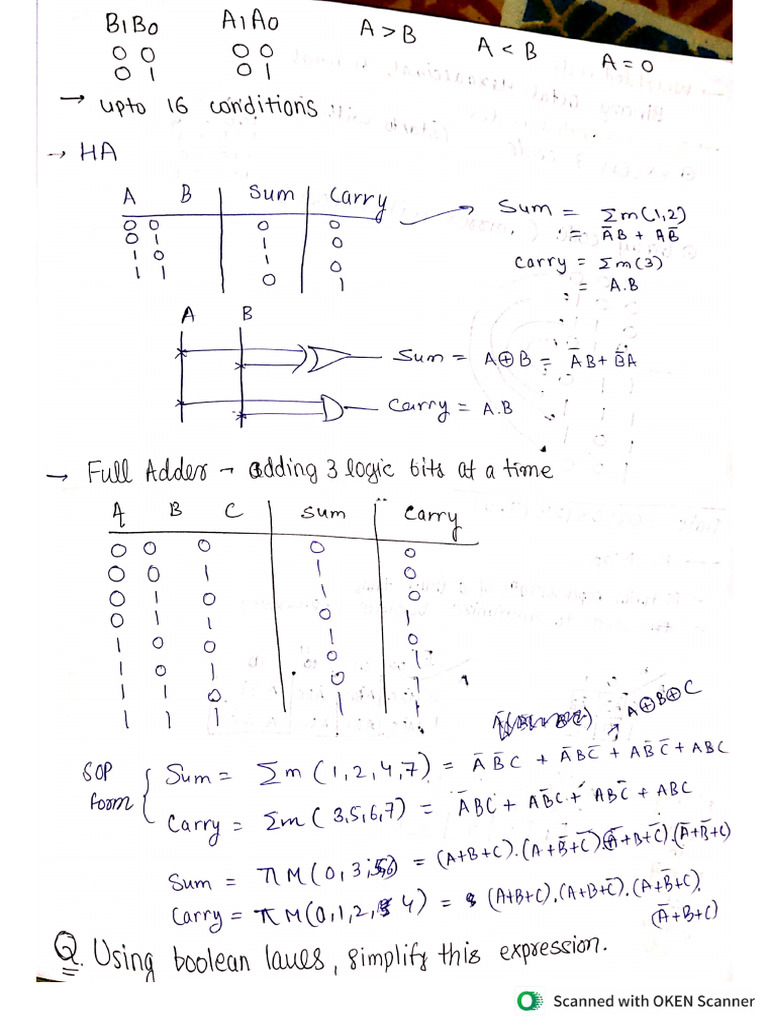 B1B0 A1A0 A > B A < B A = 0
0 0 0 0
0 1 0 1
→ upto 16 conditions
→ HA
A B Sum Carry
0 0 0 0
0 1 1 0
1 0 1 0
1 1 0 1
Sum = Σm(1,2)
= A̅B + AB̅
Carry = Σm(3)
= A.B
A B
Sum = A⊕B = A̅B + B̅A
Carry = A.B
→ Full Adder → adding 3 logic bits at a time
A B C Sum Carry
0 0 0 0 0
0 0 1 1 0
0 1 0 1 0
0 1 1 0 1
1 0 0 1 0
1 0 1 0 1
1 1 0 0 1
1 1 1 1 1
A⊕B⊕C
SOP form
Sum = Σm(1,2,4,7) = A̅B̅C + A̅BC̅ + AB̅C̅ + ABC
Carry = Σm(3,5,6,7) = A̅BC + AB̅C + ABC̅ + ABC
Sum = πM(0,3,5,6) = (A+B+C).(A+B̅+C̅).(A̅+B+C̅).(A̅+B̅+C)
Carry = πM(0,1,2,4) = (A+B+C).(A+B+C̅).(A+B̅+C).
(A̅+B+C)
Q. Using boolean laues, simplify this expression.
Scanned with OKEN Scanner